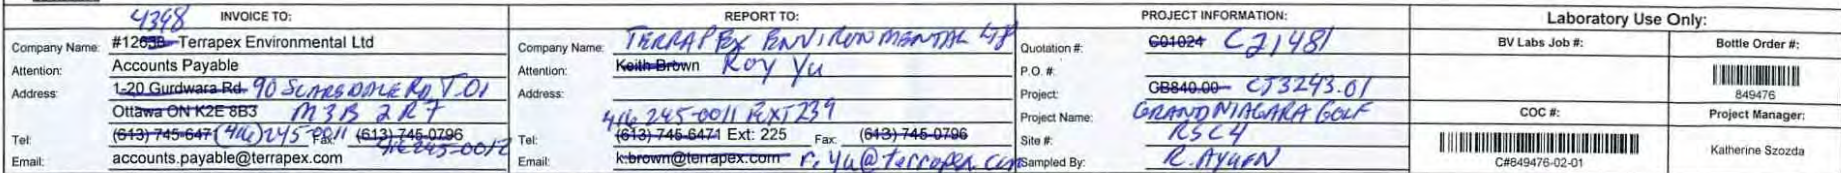 4398 INVOICE TO:
Company Name: #12638 Terrapex Environmental Ltd
Attention: Accounts Payable
Address: 1-20 Gurdwara Rd. 90 SCARSDALE RD T.O!
Ottawa ON K2E 8B3 M3B 2R7
Tel: (613) 745-647 (416) 245-0011 Fax: (613) 745-0796
416 245-0012
Email: accounts.payable@terrapex.com
REPORT TO:
Company Name: TERRAPEX ENVIRONMENTAL
Attention: Keith Brown Roy Yu
Address:
416 245-0011 EXT 239
Tel: (613) 745-6471 Ext: 225 Fax: (613) 745-0796
Email: k.brown@terrapex.com r.yu@terrapex.com
PROJECT INFORMATION:
Quotation #: C01024 C21481
P.O. #:
Project: GB840.00 CT3243.01
Project Name: GRAND NIAGARA GOLF
Site #: RSC4
Sampled By: R. AYUEN
Laboratory Use Only:
BV Labs Job #: Bottle Order #:
849476
COC #: Project Manager:
C#849476-02-01
Katherine Szozda